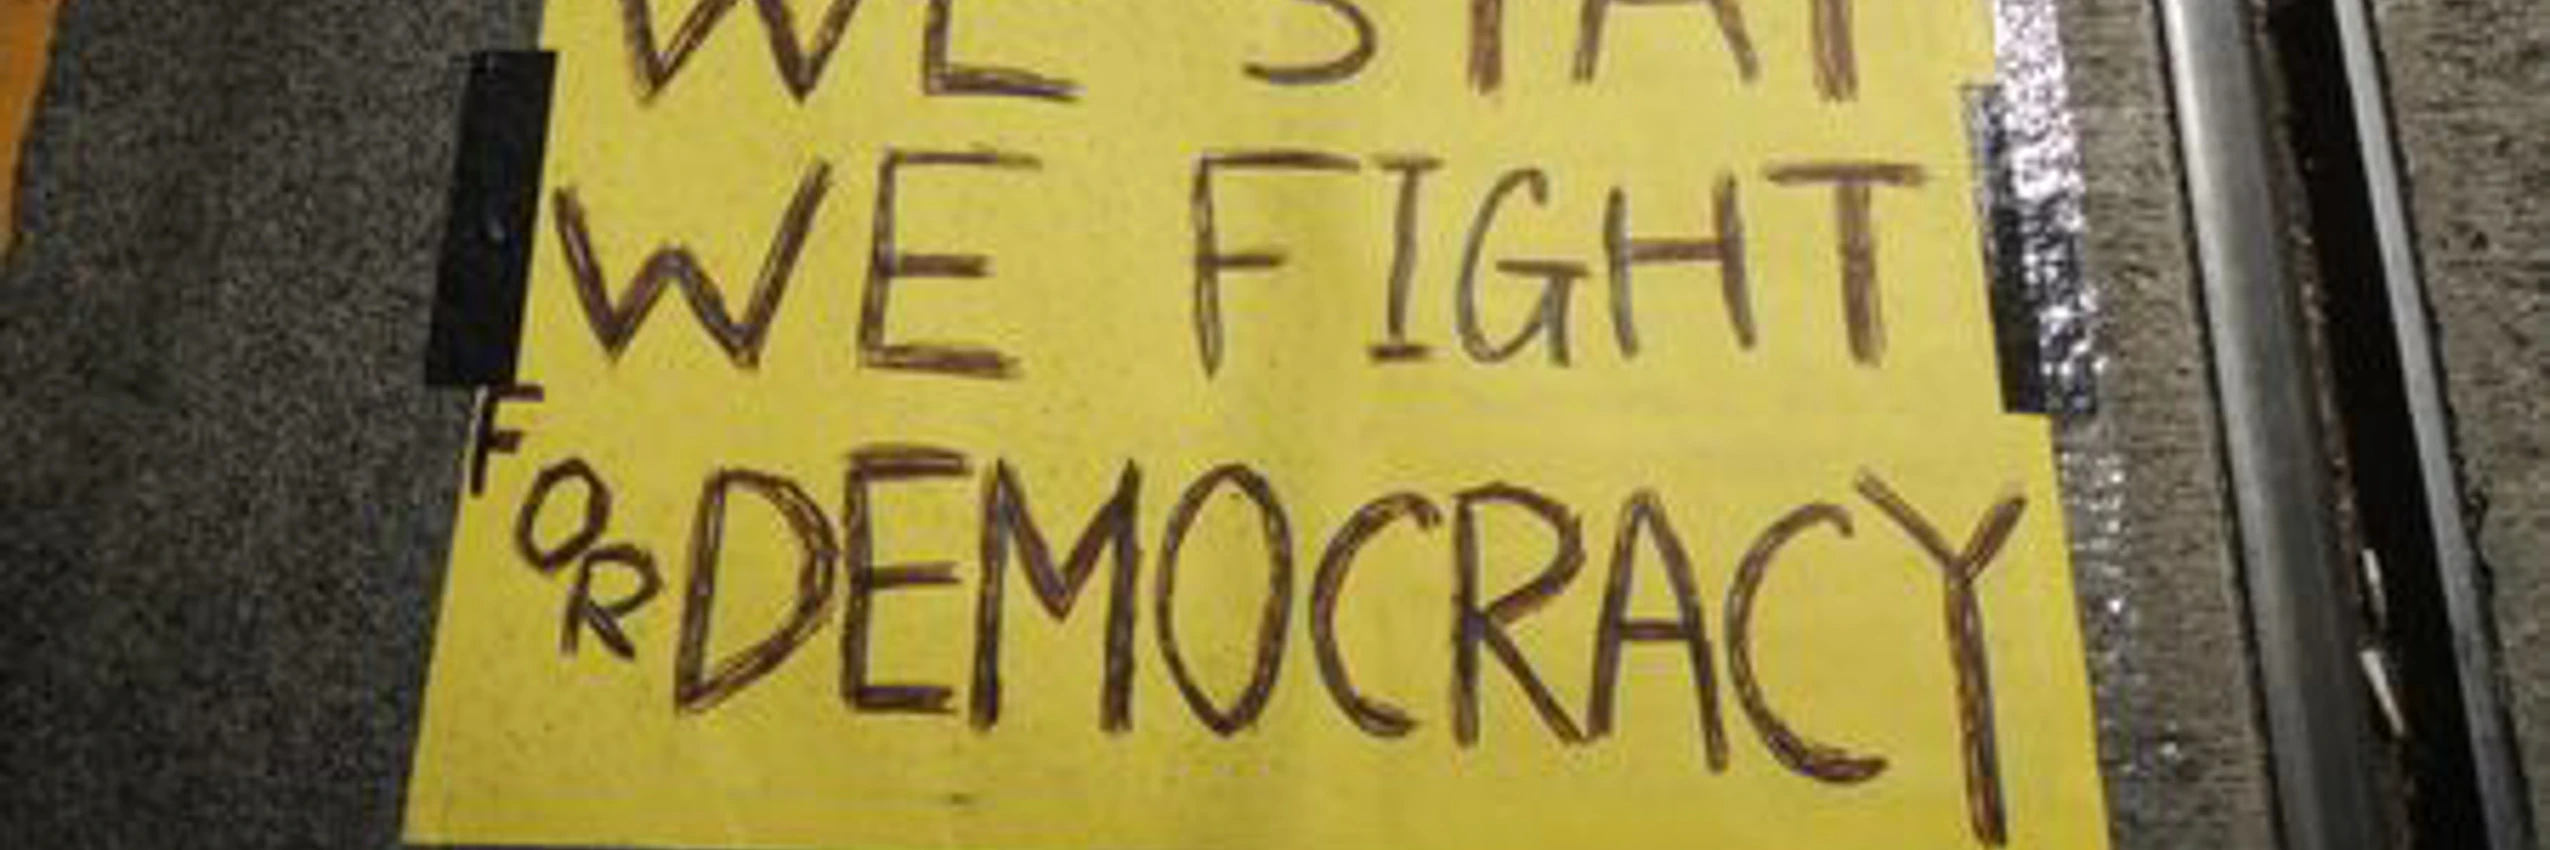 WE STAY
WE FIGHT
FOR DEMOCRACY